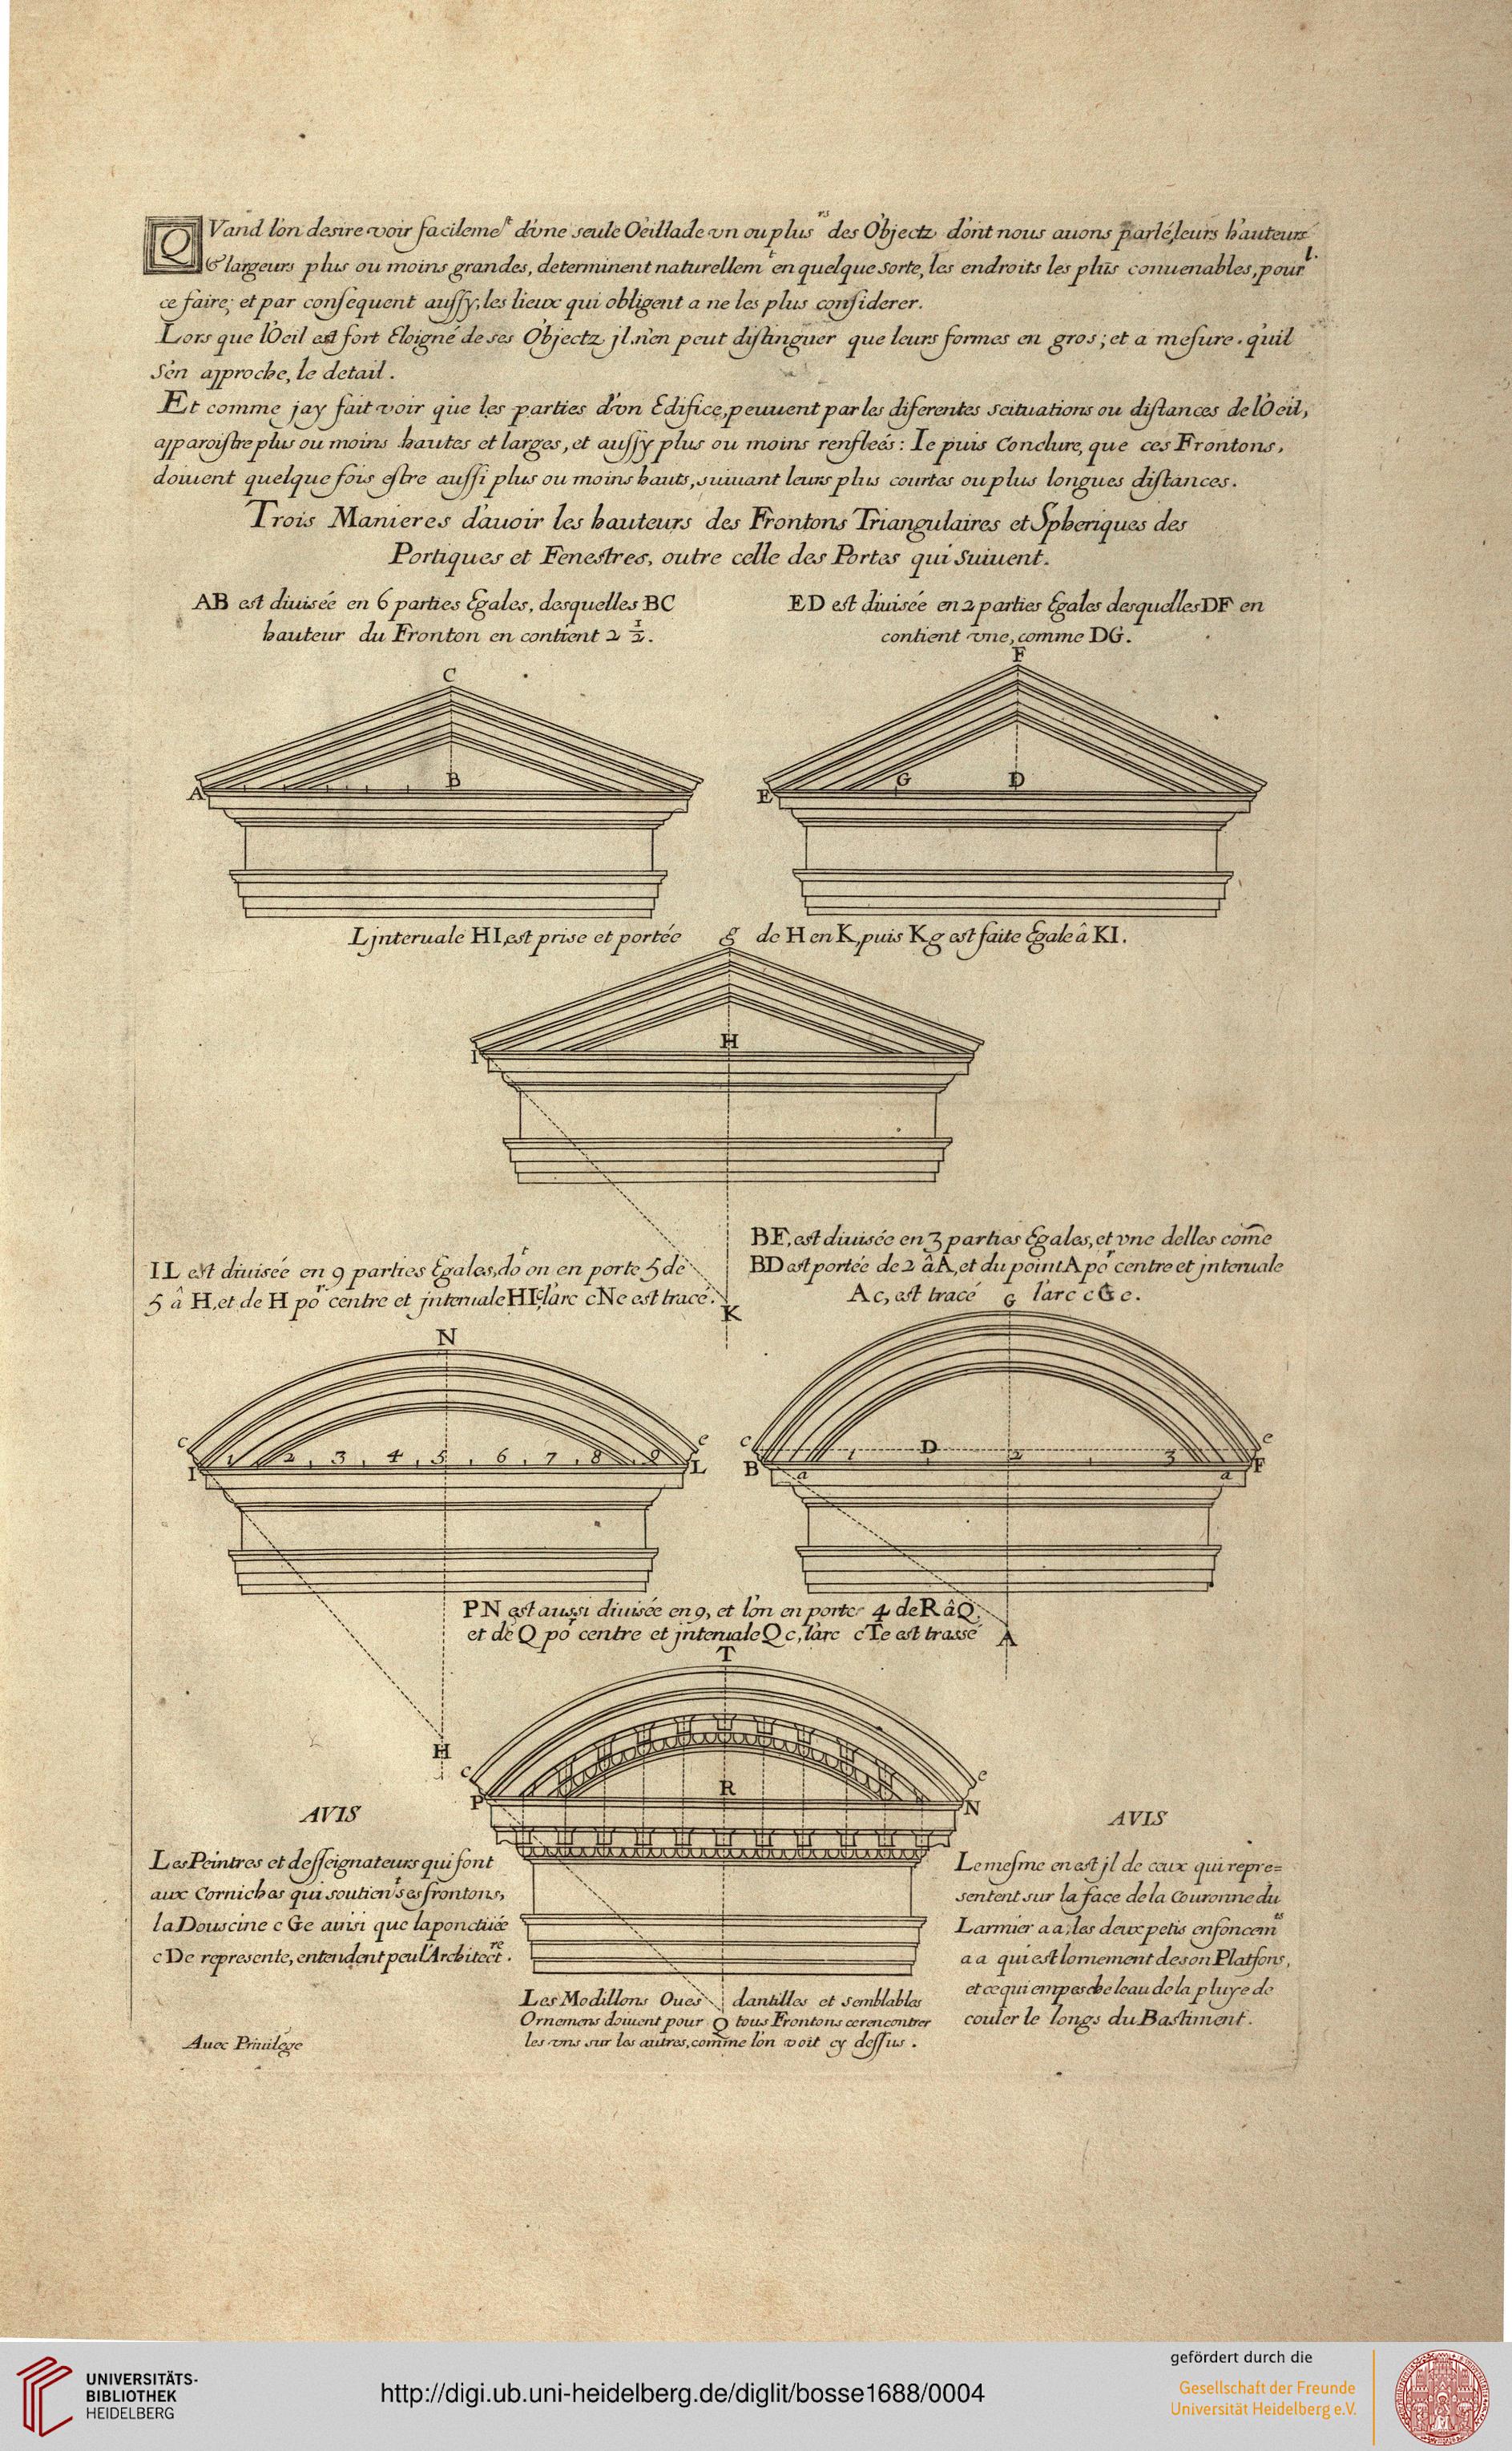 QVand l'on desire voir facileme^t d'vne seule Oeillade vn ou plus^rs des Objectz dont nous auons parlé, leurs hauteurs
& largeurs plus ou moins grandes, determinent naturellem^t en quelque sorte, les endroits les plus conuenables, pour l.
ce faire; et par consequent aussy, les lieux qui obligent a ne les plus considerer.
Lors que l'Oeil est fort Eloigné de ses Objectz jl n'en peut distinguer que leurs formes en gros; et a mesure. qu'il
s'en approche, le detail.
Et comme jay fait voir que les parties d'vn Edifice, peuuent par les diferentes scituations ou distances de l'Oeil,
apparoistre plus ou moins hautes et larges, et aussy plus ou moins renfleés: Ie puis Conclure, que ces Frontons,
doiuent quelque fois estre aussi plus ou moins hauts, suiuant leurs plus courtes ou plus longues distances.
Trois Manieres d'auoir les hauteurs des Frontons Triangulaires et Spheriques des
Portiques et Fenestres, outre celle des Portes qui suiuent.
AB est diuisée en 6 parties Egales, desquelles BC
hauteur du Fronton en contient 2 1/2.
ED est diuisée en 2 parties Egales desquelles DF en
contient vne, comme DG.
C
A
B
F
E
G
D
L'jnteruale HI, est prise et portée de H en K, puis Kg est faite Egale â KI.
g
I
H
IL est diuisée en 9 parties Egales, do^t on en porte 5 de
5 â H, et de H po^r centre et jnteruale HI, l'arc cNe est tracé.
K
BF, est diuisée en 3 parties Egales, et vne delles come
BD est portée de 2 â A, et du point A po^r centre et jnteruale
Ac, est tracé l'arc cGe.
G
N
c
e
I
1 2 3 4 5 6 7 8 9
L
c
e
B
a
1 D 2 3
a
F
PN est aussi diuisée en 9, et l'on en porte 4 de R â Q,
et de Q po^r centre et jnteruale Qc, l'arc cTe est trassé
A
T
H
c
e
P
R
N
AVIS
Les Peintres et desseignateurs qui font
aux Corniches qui soutien^t ses frontons,
la Douscine cGe auisi que la ponctuée
cDe represente, entendent peu l'Architect^re.
AVIS
Le mesme en est jl de ceux qui repre=
sentent sur la face de la Couronne du
Larmier aa; les deux petis enfoncem^es
aa qui est lornement de son Platfons,
et ce qui empesche leau de la pluye de
couler le longs du Bastiment.
Les Modillons Oues dantilles et semblables
Ornemens doiuent pour Q tous Frontons ce rencontrer
les vns sur les autres, comme l'on voit cy dessus.
Auec Priuilege
UNIVERSITÄTS-
BIBLIOTHEK
HEIDELBERG
http://digi.ub.uni-heidelberg.de/diglit/bosse1688/0004
gefördert durch die
Gesellschaft der Freunde
Universität Heidelberg e.V.